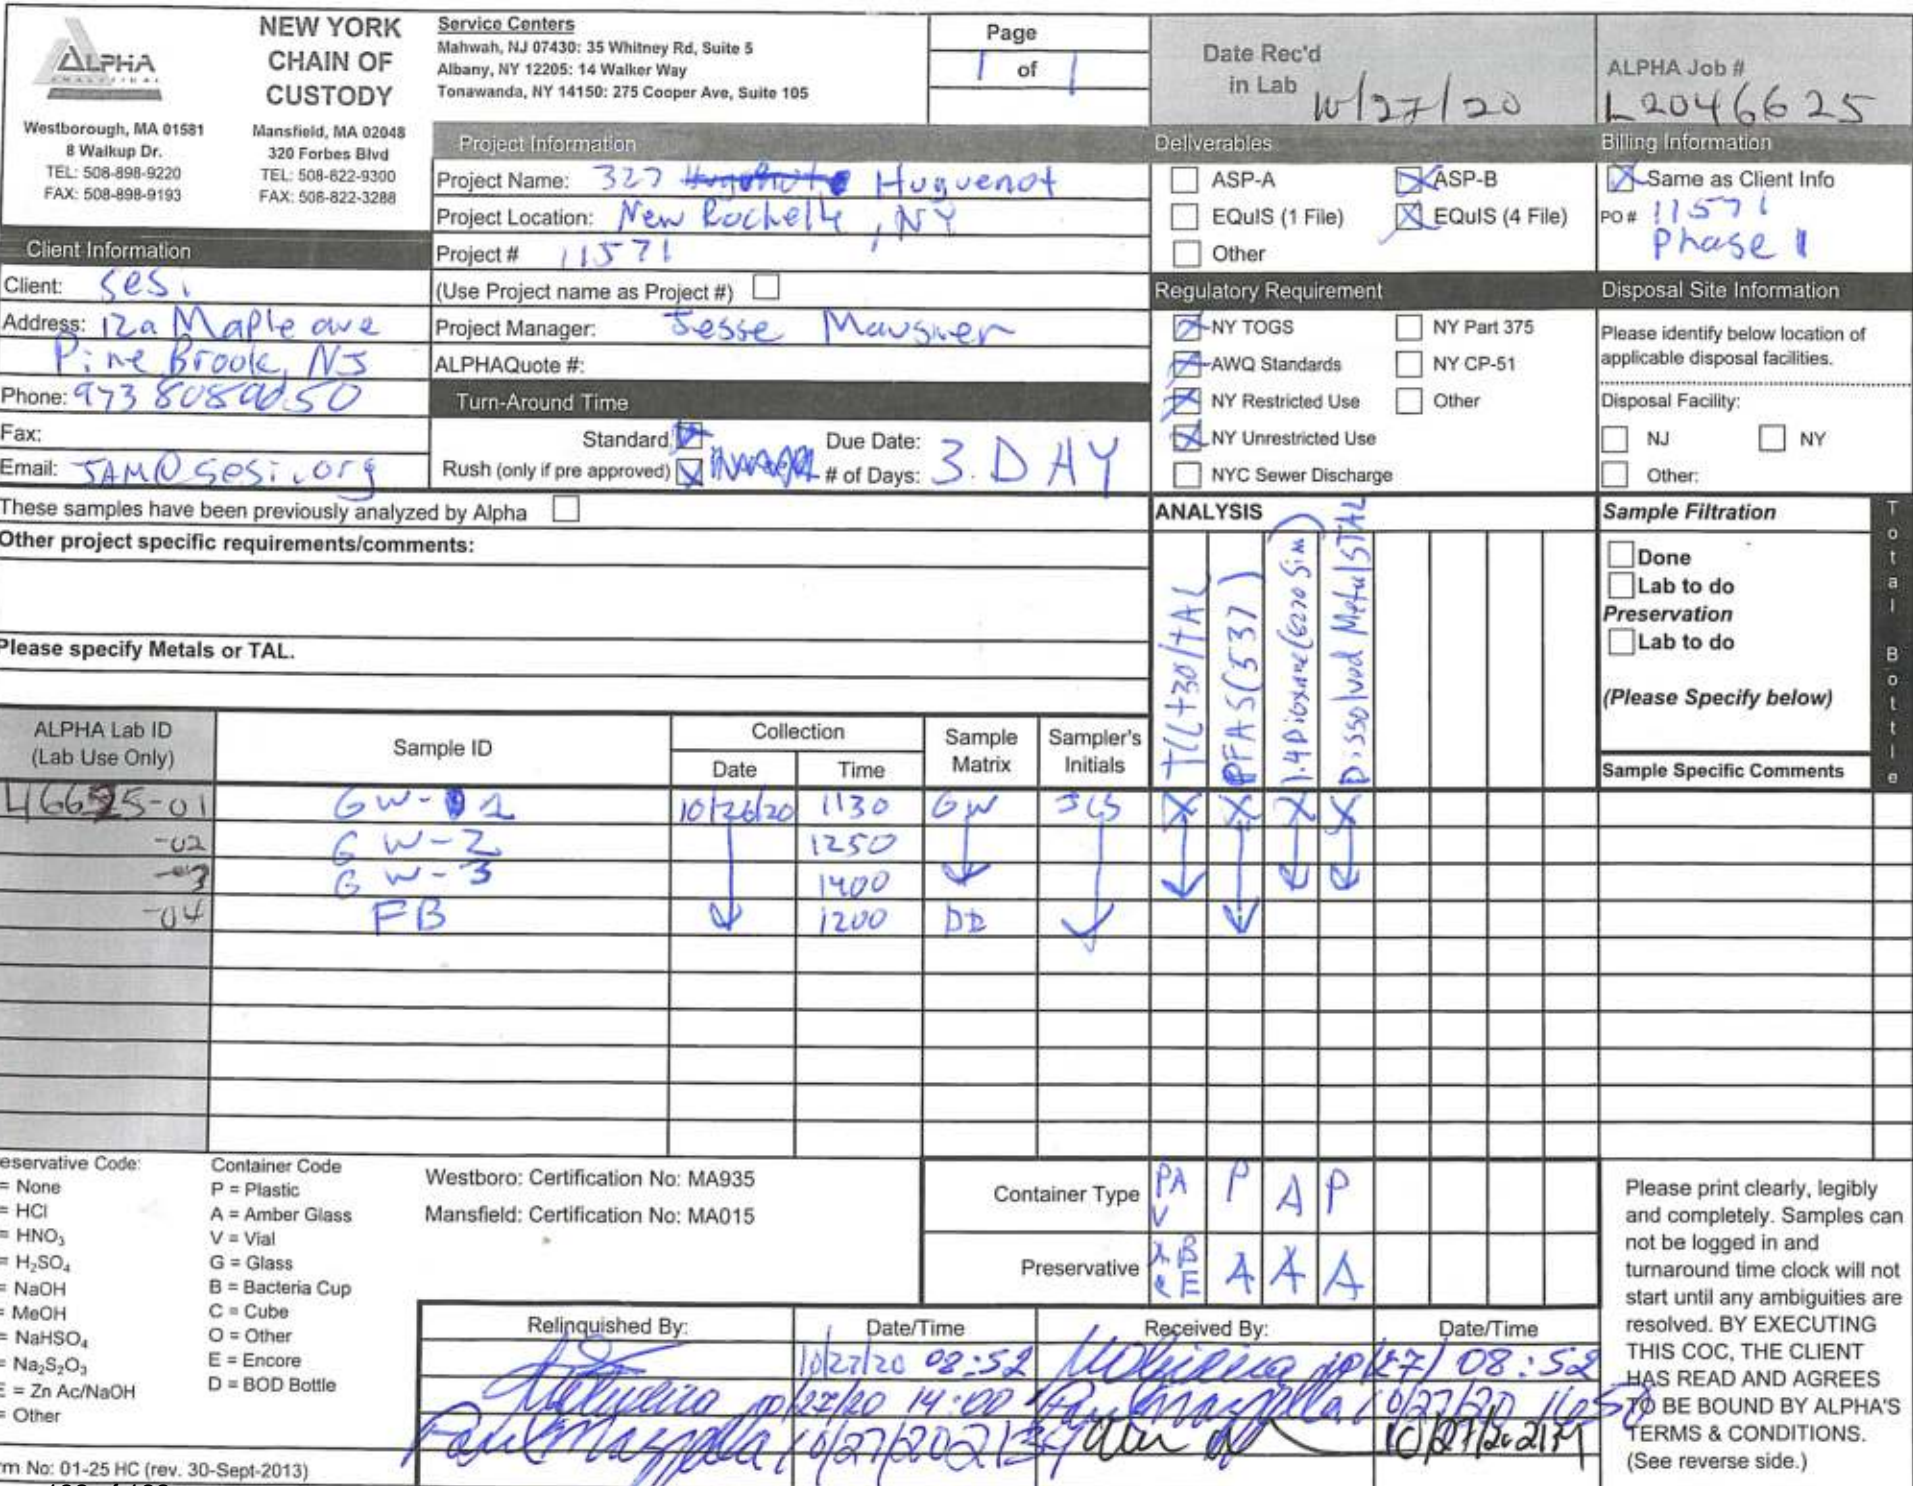 ALPHA
ANALYTICAL
Westborough, MA 01581
8 Walkup Dr.
TEL: 508-898-9220
FAX: 508-898-9193
NEW YORK
CHAIN OF
CUSTODY
Mansfield, MA 02048
320 Forbes Blvd
TEL: 508-822-9300
FAX: 508-822-3288
Service Centers
Mahwah, NJ 07430: 35 Whitney Rd, Suite 5
Albany, NY 12205: 14 Walker Way
Tonawanda, NY 14150: 275 Cooper Ave, Suite 105
Page
1 of 1
Date Rec'd
in Lab 10/27/20
ALPHA Job #
L2046625
Client Information
Client: SESI
Address: 12a Maple ave
Pine Brook, NJ
Phone: 973 808 9050
Fax:
Email: JAM@sesi.org
Project Information
Project Name: 327 Huguenot
Project Location: New Rochelle, NY
Project # 11571
(Use Project name as Project #)
Project Manager: Jesse Mausner
ALPHAQuote #:
Turn-Around Time
Standard Due Date:
Rush (only if pre approved) # of Days: 3.DAY
Deliverables
ASP-A ASP-B
EQuIS (1 File) EQuIS (4 File)
Other
Regulatory Requirement
NY TOGS NY Part 375
AWQ Standards NY CP-51
NY Restricted Use Other
NY Unrestricted Use
NYC Sewer Discharge
Billing Information
Same as Client Info
PO # 11571
Phase 1
Disposal Site Information
Please identify below location of
applicable disposal facilities.
Disposal Facility:
NJ NY
Other:
These samples have been previously analyzed by Alpha
Other project specific requirements/comments:
Please specify Metals or TAL.
ANALYSIS
TCL+30/TAL
PFAS(537)
1.4 Dioxane(8270 Sim)
Dissolved Metals TAL
Sample Filtration
Done
Lab to do
Preservation
Lab to do
(Please Specify below)
Sample Specific Comments
Total Bottle
ALPHA Lab ID
(Lab Use Only)
Sample ID
Collection
Date Time
Sample
Matrix
Sampler's
Initials
46625-01 GW-1 10/26/20 1130 GW JCS X X X X
-02 GW-2 1250
-3 GW-3 1400
-04 FB 1200 DI
eservative Code:
= None
= HCl
= HNO3
= H2SO4
= NaOH
= MeOH
= NaHSO4
= Na2S2O3
E = Zn Ac/NaOH
= Other
Container Code
P = Plastic
A = Amber Glass
V = Vial
G = Glass
B = Bacteria Cup
C = Cube
O = Other
E = Encore
D = BOD Bottle
Westboro: Certification No: MA935
Mansfield: Certification No: MA015
Container Type PA V P A P
Preservative A B E A A A
Relinquished By: Date/Time Received By: Date/Time
10/27/20 08:52 10/27/ 08:52
10/27/20 14:00 Paul Mazzella 10/27/20 1650
Paul Mazzella 10/27/20 2134 10/27/20 2134
Please print clearly, legibly
and completely. Samples can
not be logged in and
turnaround time clock will not
start until any ambiguities are
resolved. BY EXECUTING
THIS COC, THE CLIENT
HAS READ AND AGREES
TO BE BOUND BY ALPHA'S
TERMS & CONDITIONS.
(See reverse side.)
rm No: 01-25 HC (rev. 30-Sept-2013)